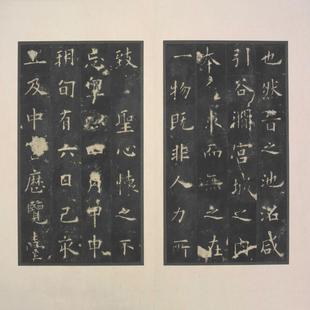 也然昔之池沼咸
引谷澗宮城之內
本求而無之在
一物既非人力所
致聖心懷之不
忘粵月甲申
朔旬有六日己亥
上及中歷覽臺